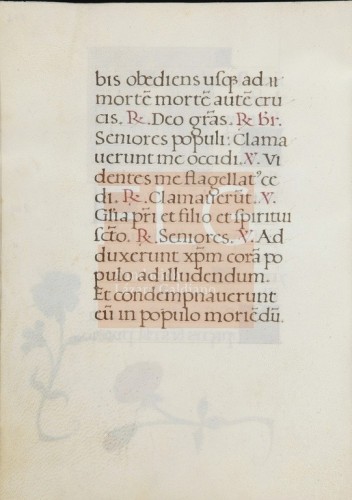 bis obediens usq3 ad ıı
mortē mortē autē cru
cis. R. Deo grās. R. br.
Seniores populi: Clama
uerunt me occidi. V. Vi
dentes me flagellat' ce
di. R. Clamauerūt. V.
Glīa pr̄i et filio et spiritui
sc̄to. R. Seniores. V. Ad
duxerunt xpm̄ corā po
pulo ad illudendum.
Et condempnauerunt
eū in populo moriēdū.